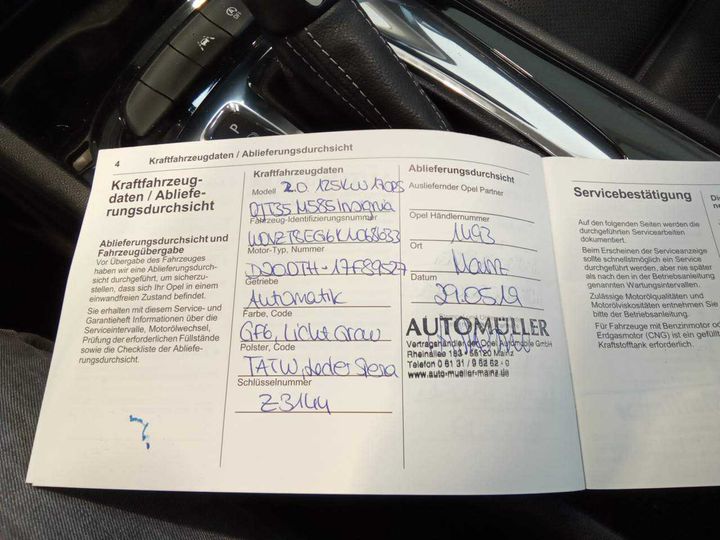 P
4
Kraftfahrzeugdaten / Ablieferungsdurchsicht
Kraftfahrzeug-
daten / Abliefe-
rungsdurchsicht
Ablieferungsdurchsicht und
Fahrzeugübergabe
Vor Übergabe des Fahrzeuges
haben wir eine Ablieferungsdurch-
sicht durchgeführt, um sicherzu-
stellen, dass sich Ihr Opel in einem
einwandfreien Zustand befindet.
Sie erhalten mit diesem Service- und
Garantieheft Informationen über die
Serviceintervalle, Motorölwechsel,
Prüfung der erforderlichen Füllstände
sowie die Checkliste der Abliefe-
rungsdurchsicht.
Kraftfahrzeugdaten
Modell 2.0 125KW 170PS
Insignia
Fahrzeug-Identifizierungsnummer
Motor-Typ, Nummer
Getriebe
Automatik
Farbe, Code
Polster, Code
TATW, Leder Siena
Schlüsselnummer
Z3144
Ablieferungsdurchsicht
Ausliefernder Opel Partner
Opel Händlernummer
1493
Ort
Mainz
Datum
29.05.19
AUTOMÜLLER
Vertragshändler der Opel Automobile GmbH
Rheinallee 183 • 55120 Mainz
Telefon 0 61 31 / 9 62 62 - 0
www.auto-mueller-mainz.de
Servicebestätigung
Auf den folgenden Seiten werden die
durchgeführten Servicearbeiten
dokumentiert.
Beim Erscheinen der Serviceanzeige
sollte schnellstmöglich ein Service
durchgeführt werden, aber nie später
als nach den in der Betriebsanleitung
genannten Wartungsintervallen.
Zulässige Motorölqualitäten und
Motorölviskositäten entnehmen Sie
bitte der Betriebsanleitung.
Für Fahrzeuge mit Benzinmotor o
Erdgasmotor (CNG) ist ein
Kraftstofftank erforderlich.